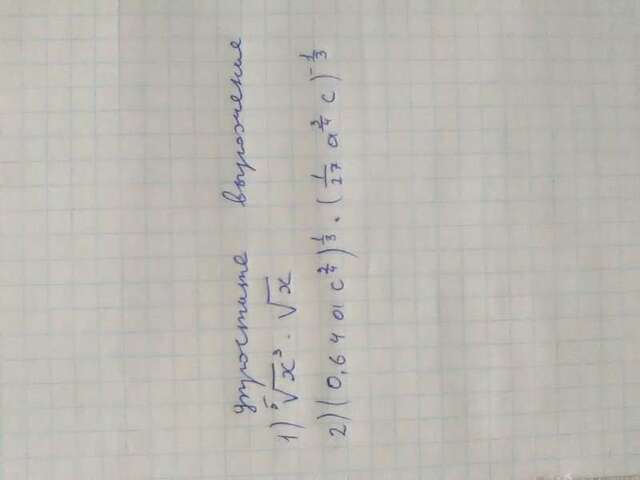 упростите выражения
1) ⁵√x³ · √x
2) (0,64 a c^{3/4})^{1/3} · (1/27 a^{3/4} c)^{-1/3}